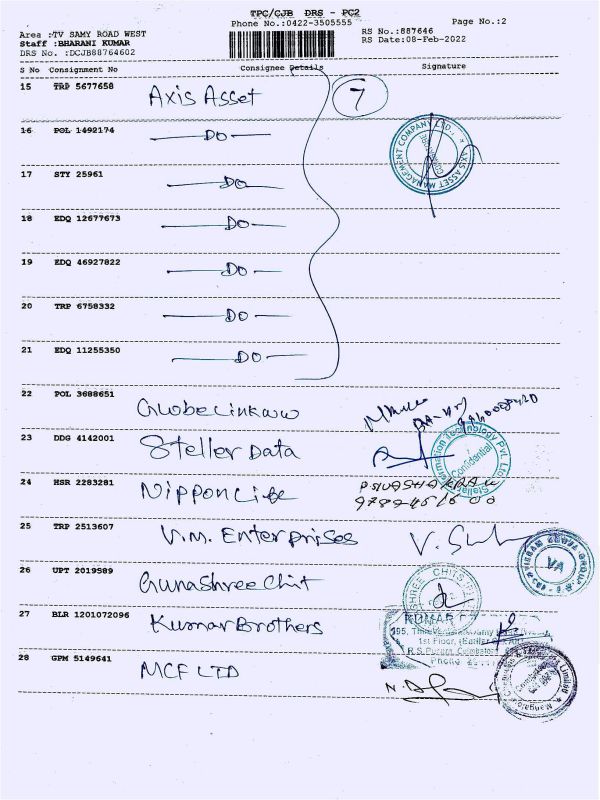 TPC/CJB DRS - PC2
Phone No.:0422-3505555
Page No.:2
Area :TV SAMY ROAD WEST
Staff :BHARANI KUMAR
DRS No. :DCJB88764602
RS No.:887646
RS Date:08-Feb-2022
S No Consignment No Consignee Details Signature
15 TRP 5677658 Axis Asset 7
16 POL 1492174 —DO—
17 STY 25961 —DO—
18 EDQ 12677673 —DO—
19 EDQ 46927822 —DO—
20 TRP 6758332 —DO—
21 EDQ 11255350 —DO—
AXIS ASSET MANAGEMENT COMPANY LTD.
22 POL 3688651 Globelinkww
23 DDG 4142001 Steller Data
Confidential
24 HSR 2283281 NipponLife
25 TRP 2513607 V.M. Enterprises
VA
26 UPT 2019589 GunaShree Chit
27 BLR 1201072096 Kumar Brothers
KUMAR
1st Floor,
R.S. Puram, Coimbatore
Phone
28 GPM 5149641 MCF LTD